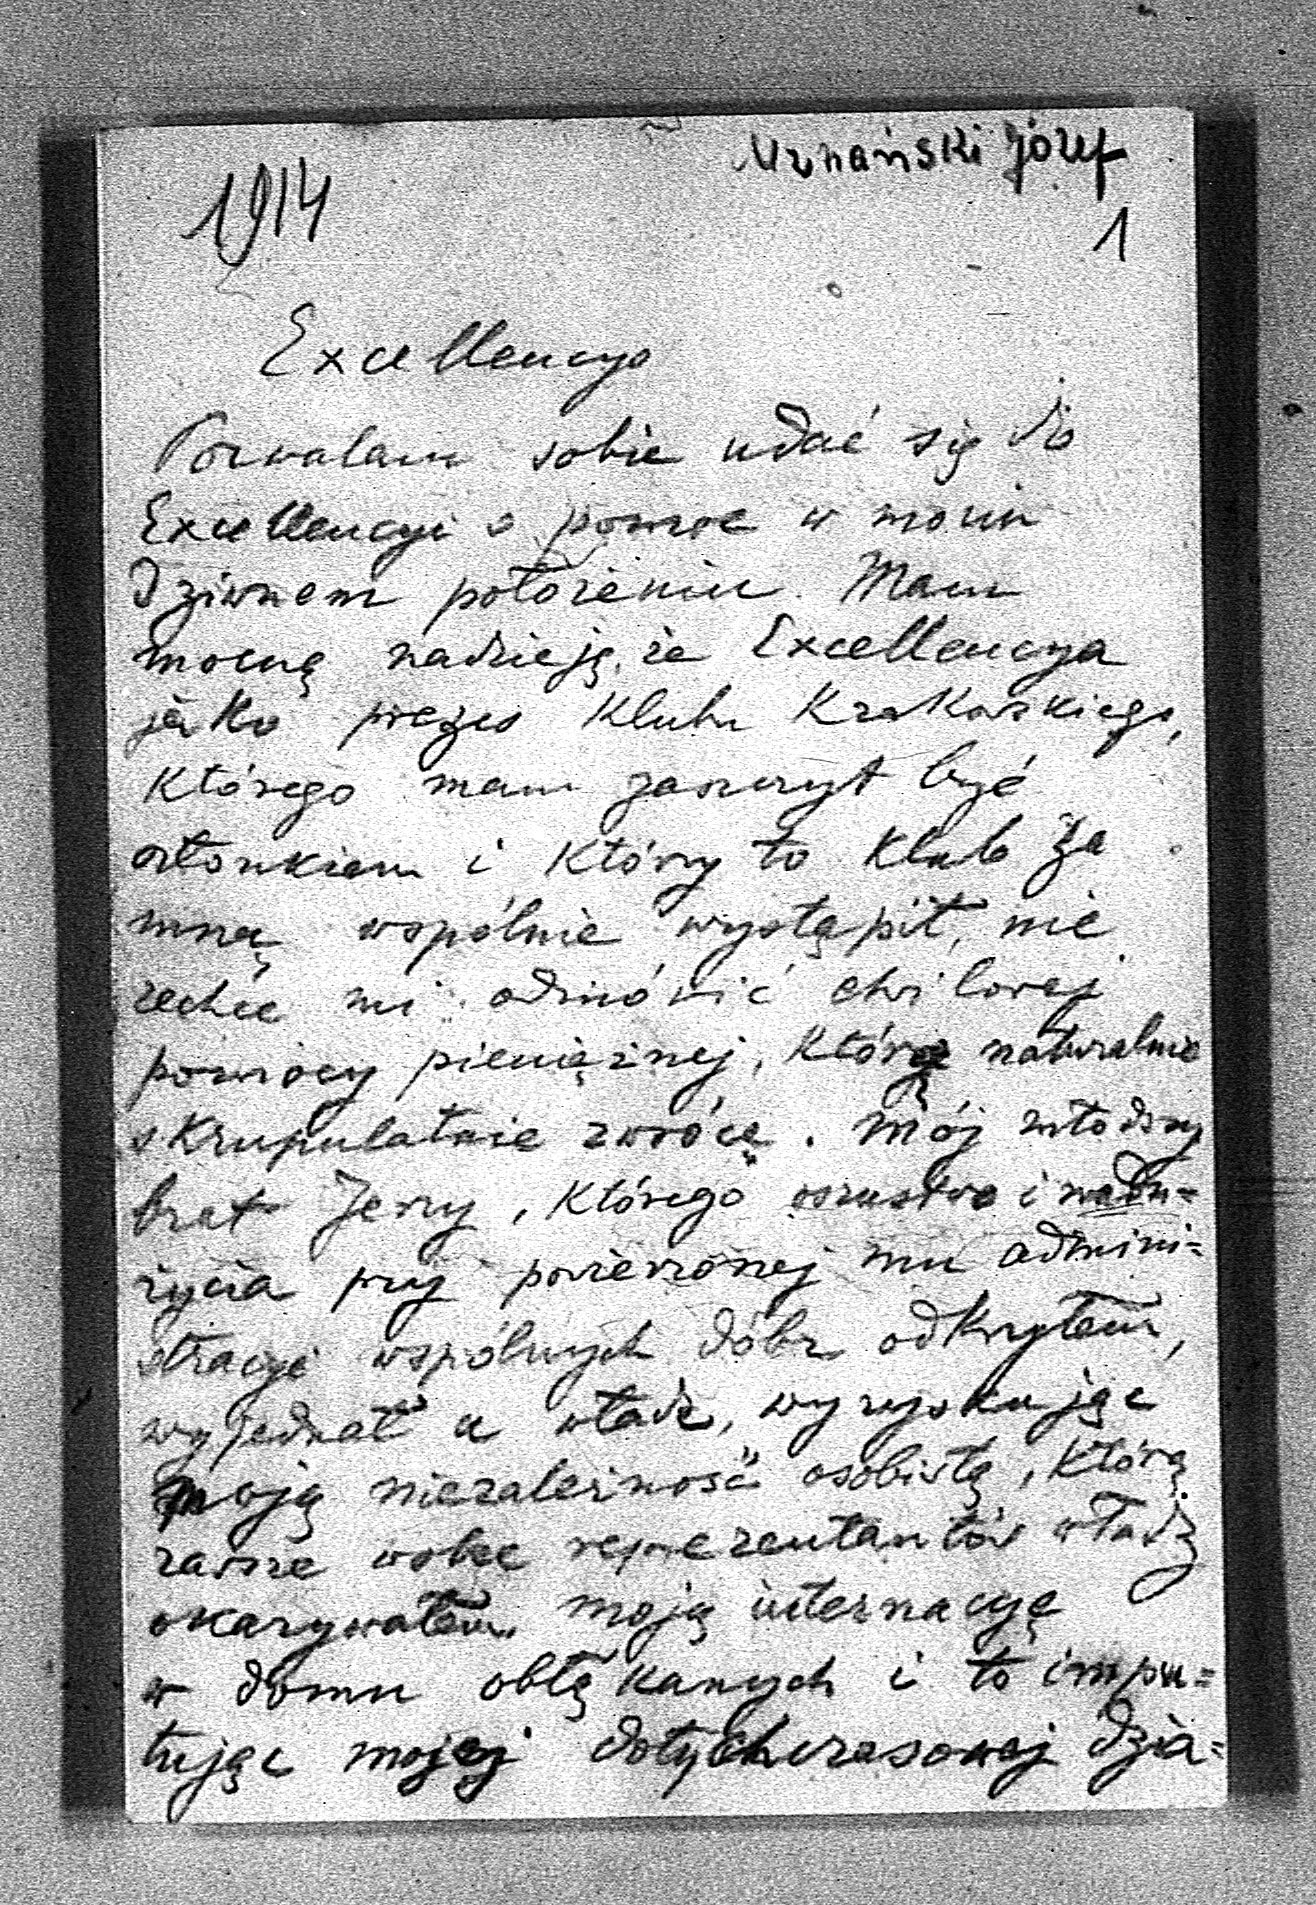 1914
Józef
1
Excellencyo
Pozwalam sobie udać się do
Excellencyi o pomoc w moim
dziwnem położeniu. Mam
mocną nadzieję, że Excellencya
jako prezes Klubu Krakowskiego,
którego mam zaszczyt być
członkiem i który to Klub ze
mną wspólnie wystąpił, nie
zechce mi odmówić chwilowej
pomocy pieniężnej, którą naturalnie
skrupulatnie zwrócę. Mój młodszy
brat Jerzy, którego oszustwa i nadu=
życia przy powierzonej mu admini=
stracyi wspólnych dóbr odkryłem,
wyjednał u władz, wyzyskując
moją niezależność osobistą, którą
zawsze wobec reprezentantów władz
okazywałem, moją internacyę
w domu obłąkanych i to impu=
tując mojej dotychczasowej dzia=